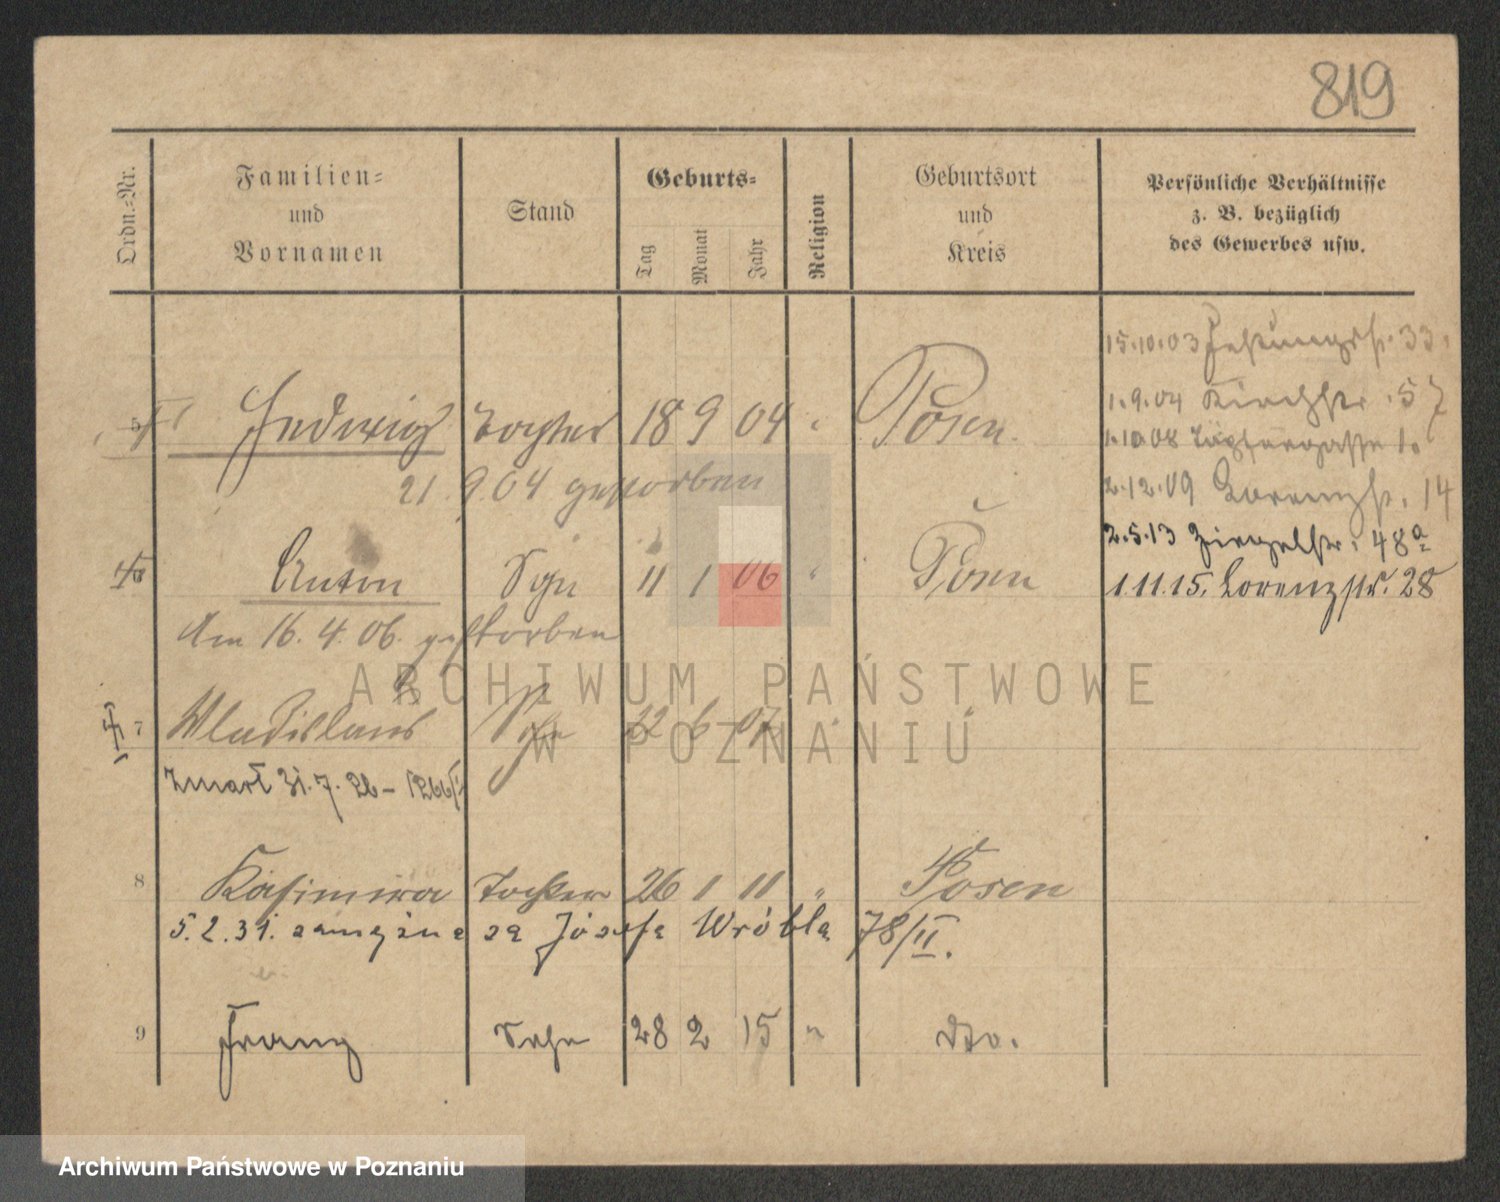 819
Ordn.-Nr.
Familien-
und
Vornamen
Stand
Geburts-
Tag
Monat
Jahr
Religion
Geburtsort
und
Kreis
Persönliche Verhältnisse
z. B. bezüglich
des Gewerbes usw.
15.10.03 33
1.9.04 Kirchstr. 57
1.10.08 1.
2.12.09 Lorenzstr. 14
2.5.13 Ziegelstr. 48a
1.11.15. Lorenzstr. 28
5 Hedwig Tochter 18 9 04 " Posen
21.9.04 gestorben
6 Anton Sohn 11 1 06 " Posen
Am 16.4.06. gestorben
7 Wladislaus Sohn 22 6 07 " "
Zmarł 31.7.26 –
8 Kasimira Tochter 26 1 11 " Posen
5.2.31. zamężna za Józefa Wróbla 78/II.
9 Franz Sohn 28 2 15 " dto.
ARCHIWUM PAŃSTWOWE
W POZNANIU
Archiwum Państwowe w Poznaniu